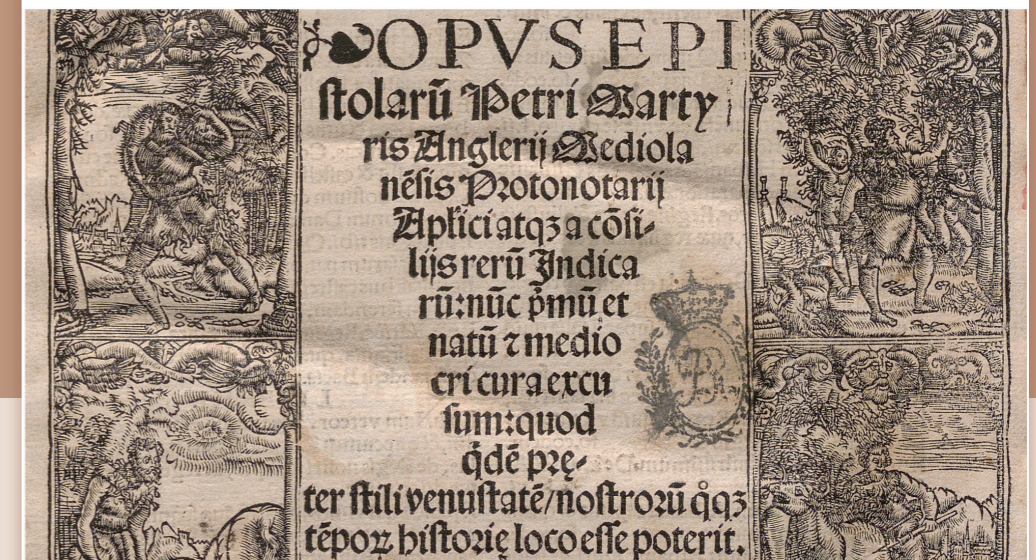 OPVS EPI
stolarū Petri Marty
ris Anglerij Mediola
nēsis Protonotarij
Apłici atqꝫ a cōsi⸗
lijs rerū Indica
rū: nūc p̄mū et
natū ⁊ medio
cri cura excu
sum: quod
q̇dē prę⸗
ter stili venustatē/nostrorū q̊qꝫ
tēporꝝ historię loco esse poterit.